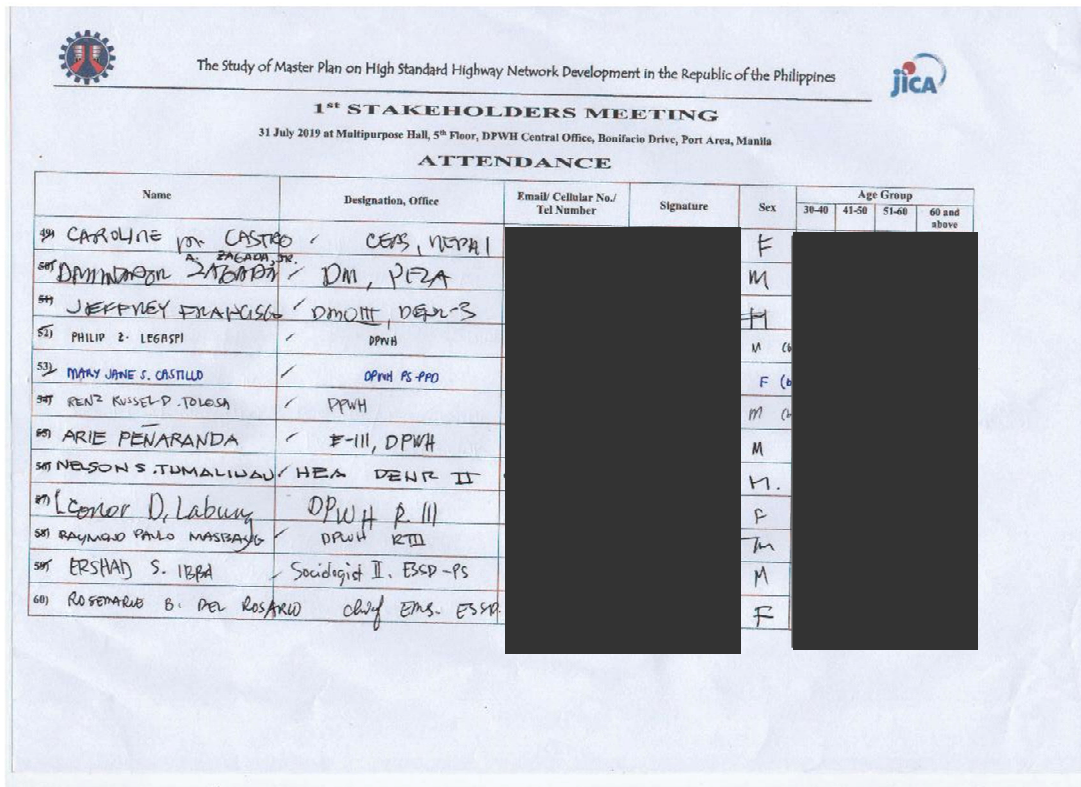 The Study of Master Plan on High Standard Highway Network Development in the Republic of the Philippines
jICA
1st STAKEHOLDERS MEETING
31 July 2019 at Multipurpose Hall, 5th Floor, DPWH Central Office, Bonifacio Drive, Port Area, Manila
ATTENDANCE
Name Designation, Office Email/ Cellular No./ Tel Number Signature Sex Age Group
30-40 41-50 51-60 60 and above
49) CAROLINE M. CASTRO CEAS, F
50) A. ZAGADA, JR. DM, PEZA M
51) JEFFREY FRANCISCO DMOIII, DENR-3 M
52) PHILIP Z. LEGASPI DPWH M
53) MARY JANE S. CASTILLO DPWH PS-PPD F
54) RENZ RUSSEL D. TOLOSA DPWH M
55) ARIE PEÑARANDA E-III, DPWH M
56) NELSON S. TUMALIUAN HEA DENR II M.
57) Leonor D. Labung DPWH R III F
58) RAYMOND PAULO MASBANG DPWH RIII M
59) ERSHAD S. IBBA Sociologist II. ESSD-PS M
60) ROSEMARIE B. DEL ROSARIO Chief EMS. ESSD. F